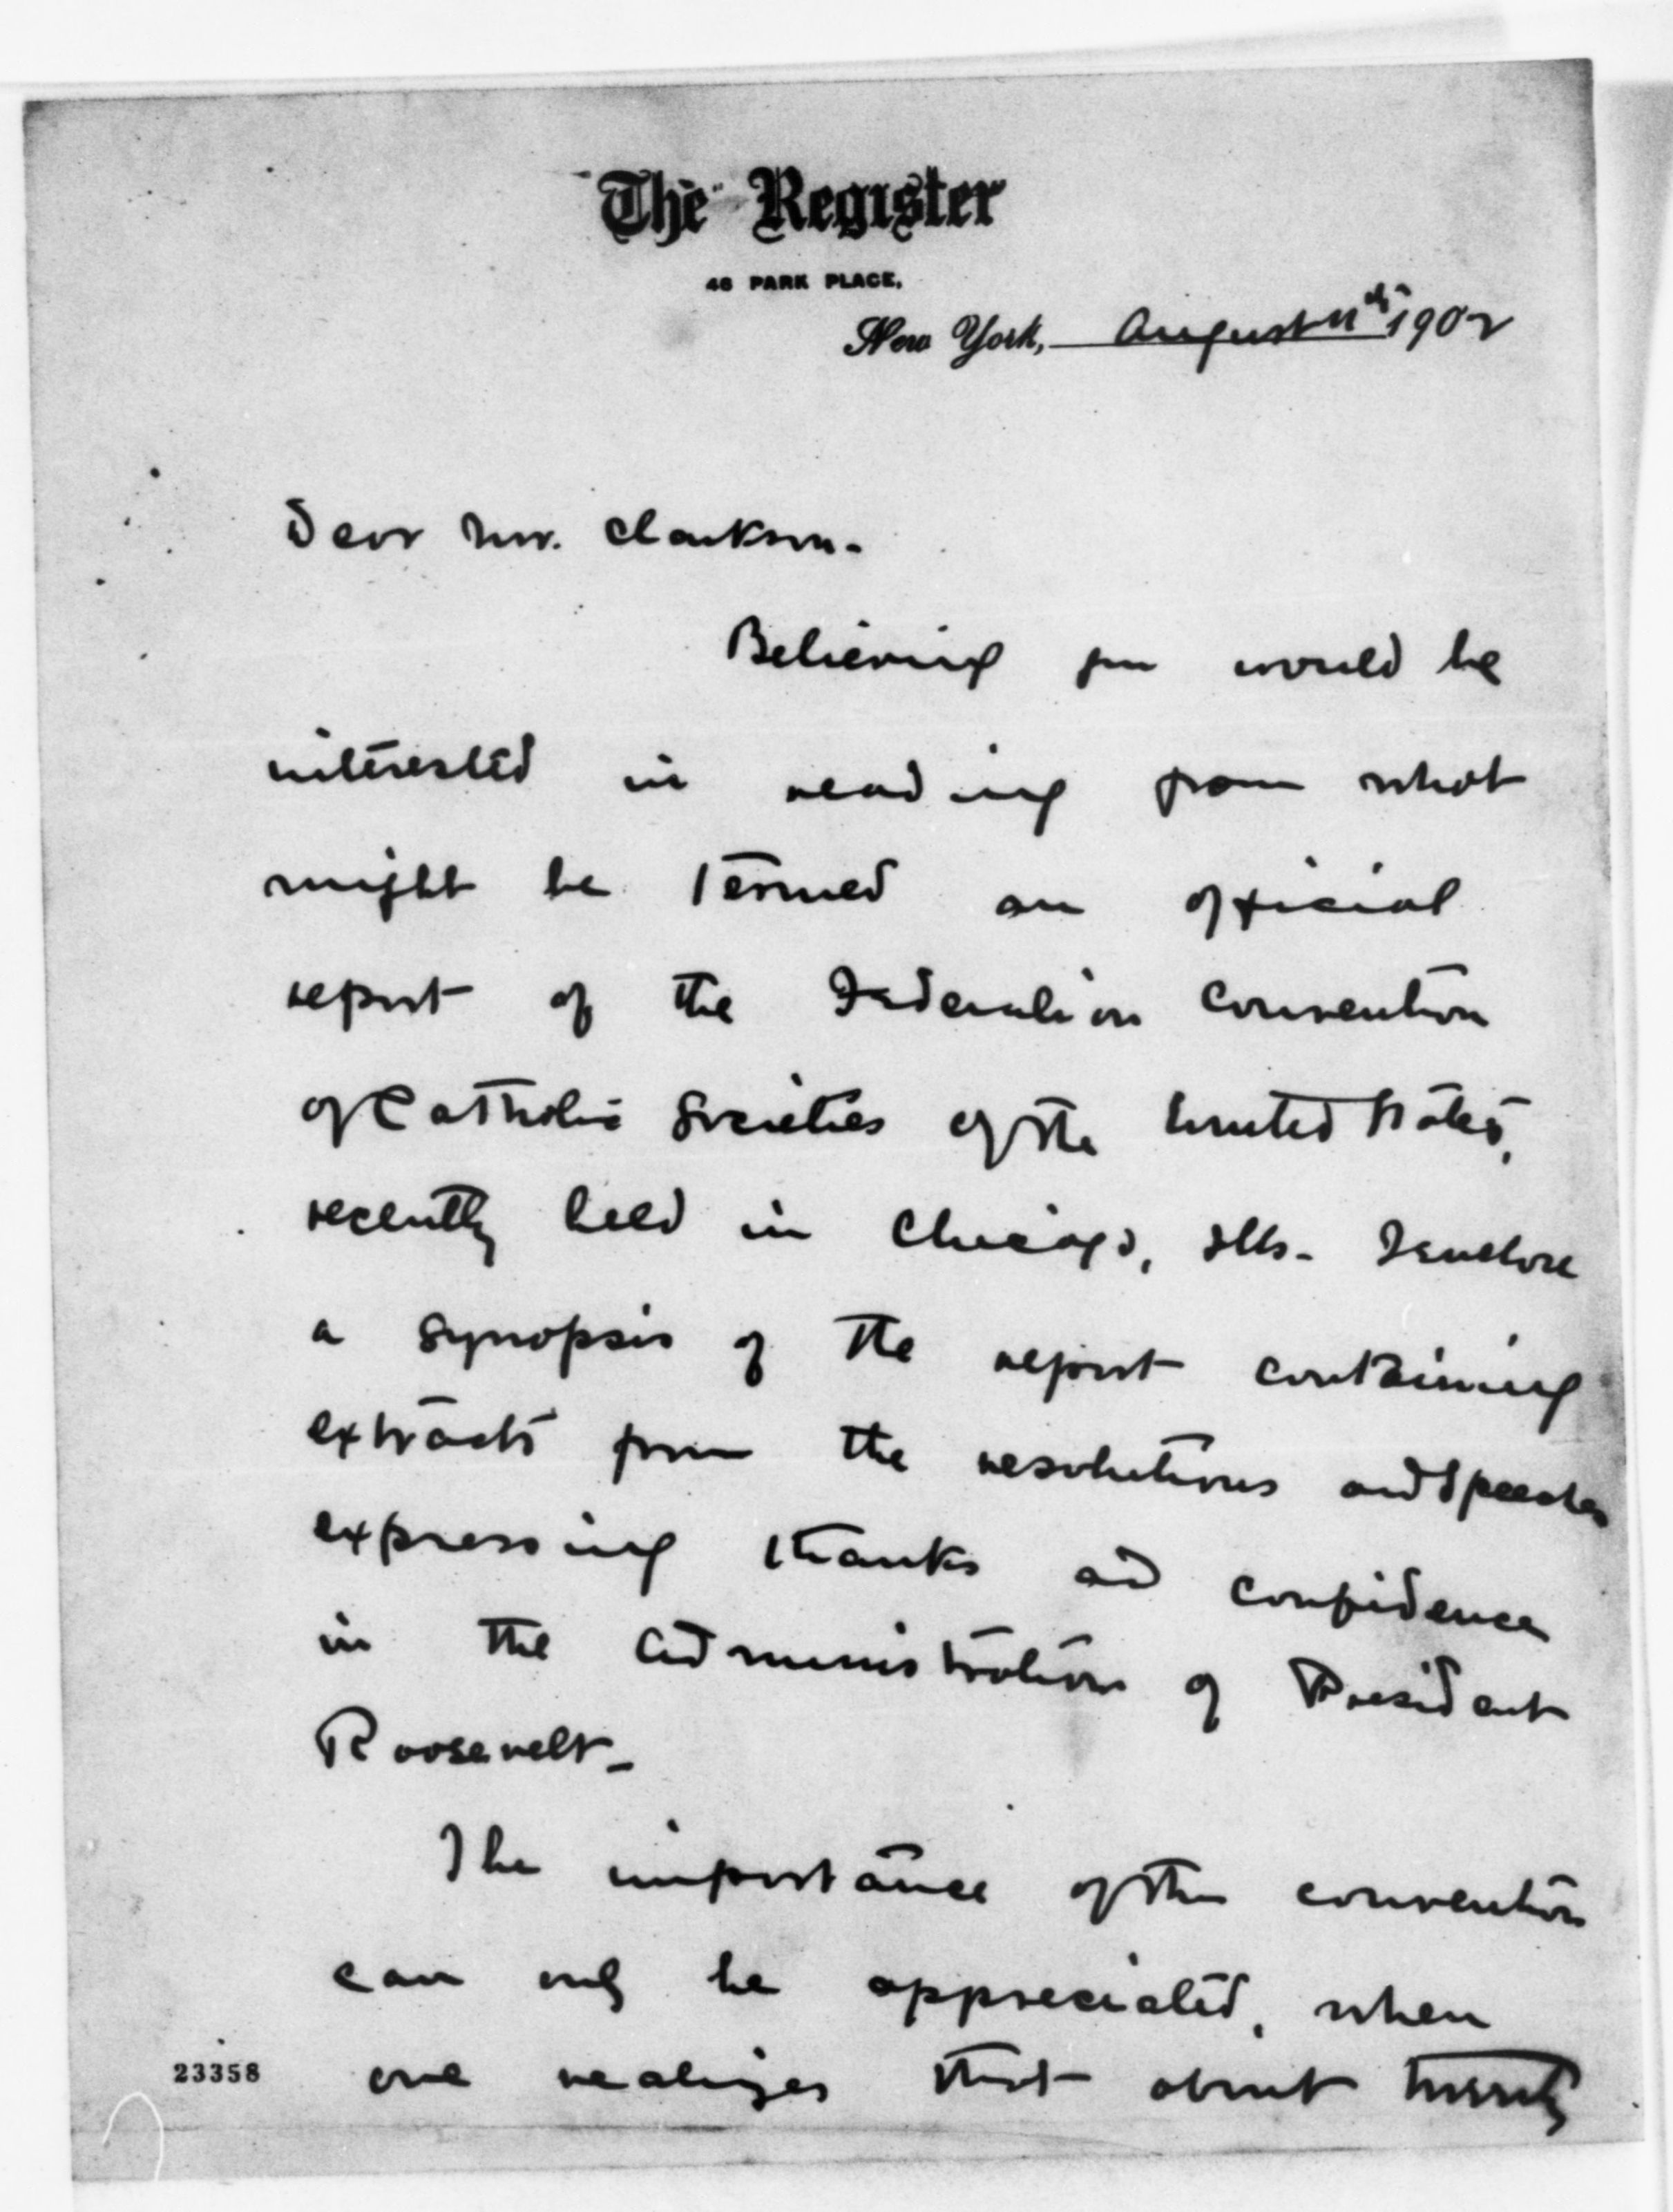 The Register
46 PARK PLACE,
New York, August 11th 1902
Dear Mr. Clarkson.
Believing you would be
interested in reading from what
might be termed an official
report of the Federation Convention
of Catholic Societies of the United States,
recently held in Chicago, Ills. I enclose
a synopsis of the report containing
extracts from the resolutions and speeches
expressing thanks and confidence
in the administration of President
Roosevelt.
The importance of the convention
can only be appreciated, when
23358 one realizes that about twenty